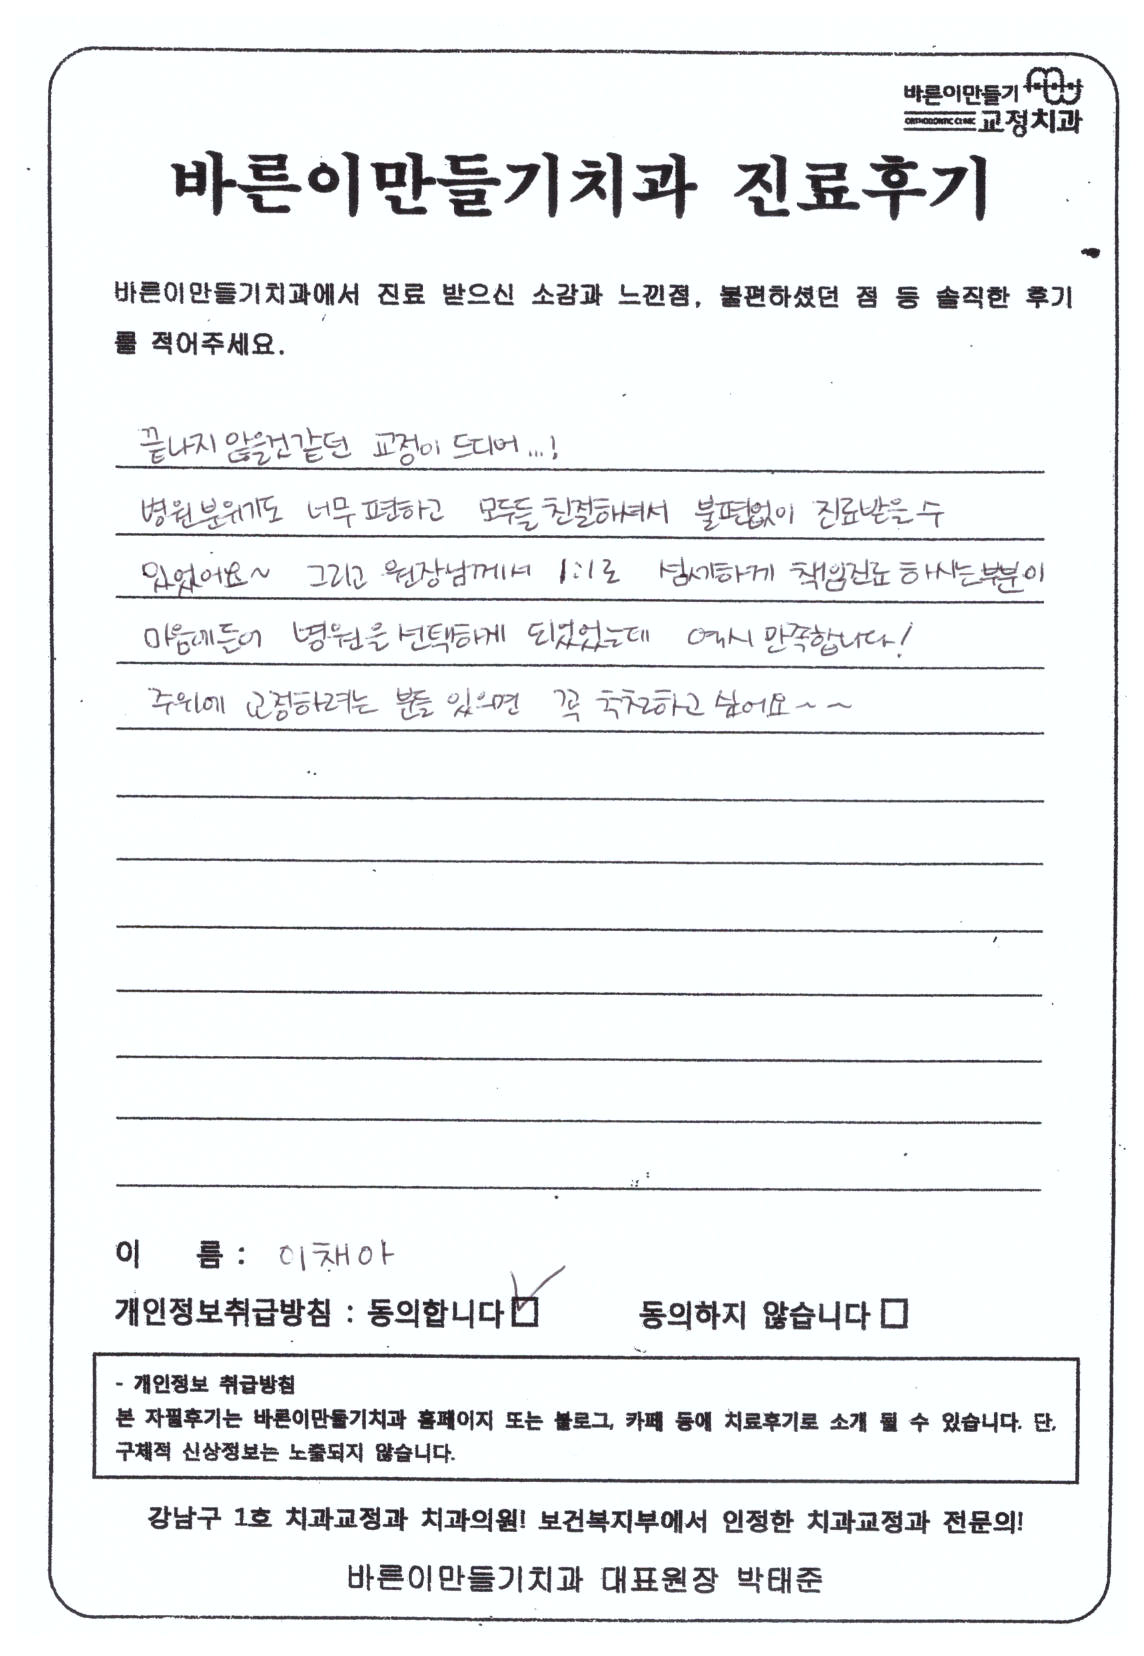 바른이만들기
ORTHODONTIC CLINIC 교정치과
바른이만들기치과 진료후기
바른이만들기치과에서 진료 받으신 소감과 느낀점, 불편하셨던 점 등 솔직한 후기
를 적어주세요.
끝나지 않을것같던 교정이 드디어...!
병원분위기도 너무 편하고 모두들 친절하셔서 불편없이 진료받을 수
있었어요~ 그리고 원장님께서 1:1로 섬세하게 책임진료 하시는부분이
마음에들어 병원을 선택하게 되었었는데 역시 만족합니다!
주위에 교정하려는 분들 있으면 꼭 추천하고 싶어요~~
이 름 : 이채아
개인정보취급방침 : 동의합니다 동의하지 않습니다
- 개인정보 취급방침
본 자필후기는 바른이만들기치과 홈페이지 또는 블로그, 카페 등에 치료후기로 소개 될 수 있습니다. 단,
구체적 신상정보는 노출되지 않습니다.
강남구 1호 치과교정과 치과의원! 보건복지부에서 인정한 치과교정과 전문의!
바른이만들기치과 대표원장 박태준